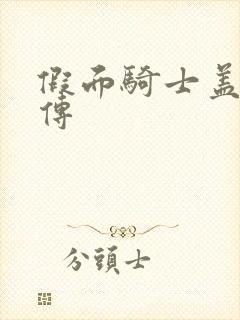 假面騎士蓋
傳
分頭士